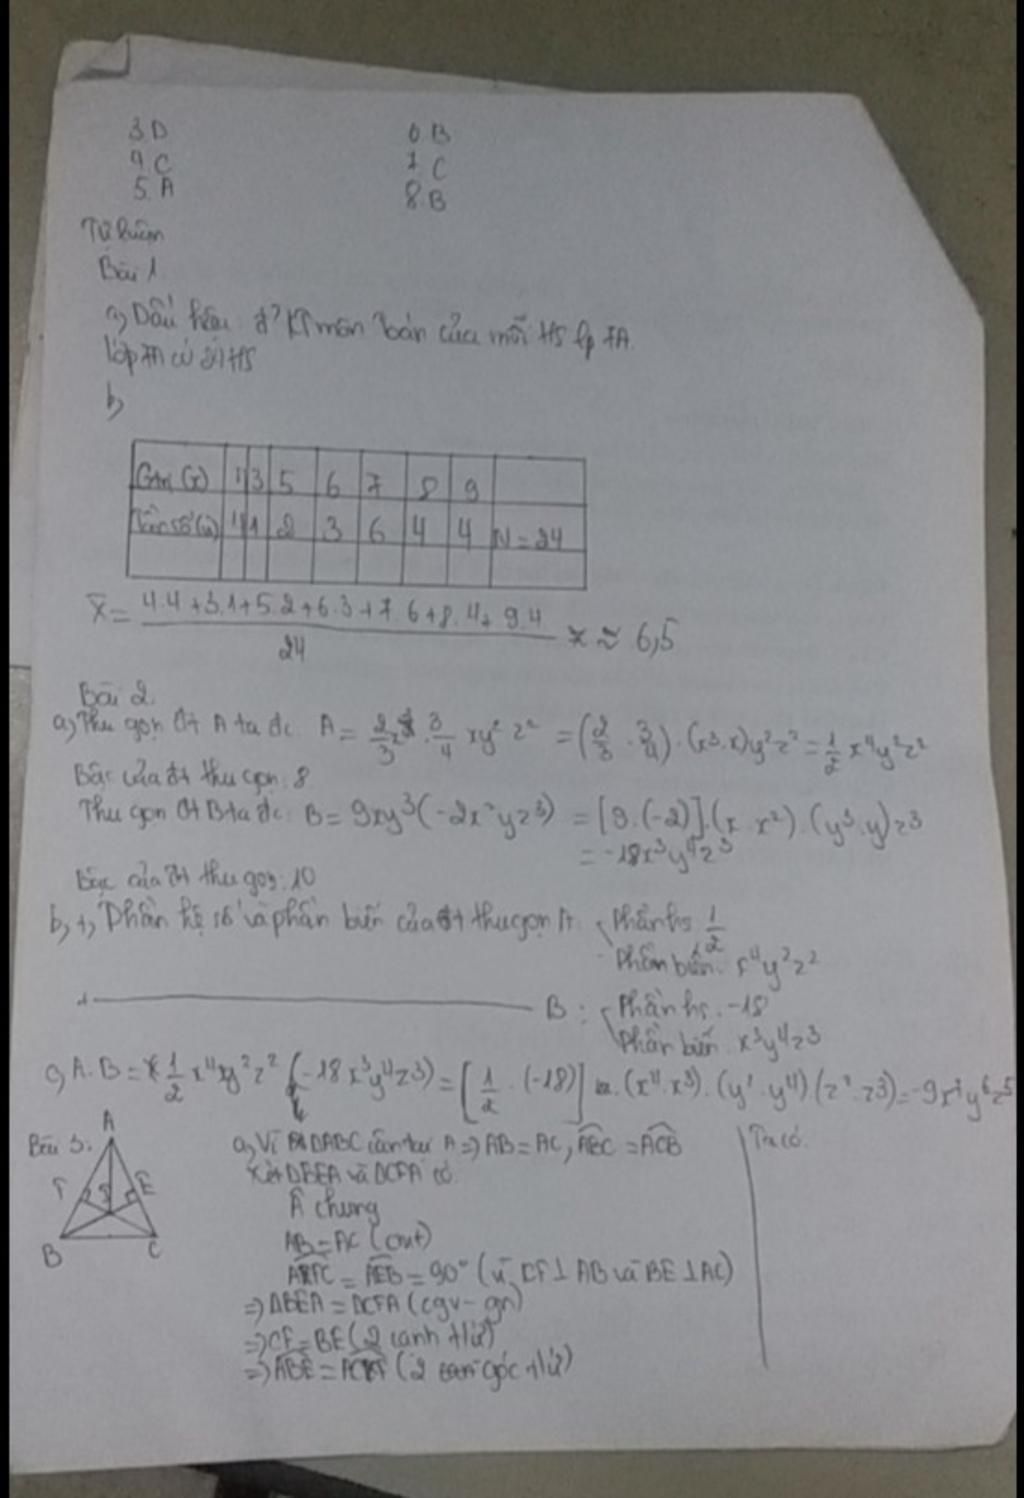 3.D
4.C
5.A
6.B
7.C
8.B
Tự luận
Bài 1
a, Dấu hiệu: đ' KT môn Toán của mỗi HS lp 7A.
lớp 7A có HS
b,
Gtrị (x) 1 3 5 6 7 8 9
Tần số (n) 1 1 2 3 6 4 4 N = 24
X̄ = (4.4+3.1+5.2+6.3+7.6+8.4+9.4)/24 x ≈ 6,5
Bài 2.
a, Thu gọn đt A ta đc: A = 2/3 x³ . 3/4 xy² z² = (2/3 . 3/4) . (x³.x)y²z² = 1/2 x⁴y²z²
Bậc của đt thu gọn: 8
Thu gọn đt B ta đc: B = 9xy³(-2x²yz³) = [9.(-2)].(x.x²).(y³.y)z³
= -18x³y⁴z³
Bậc của đt thu gọn: 10
b, +, Phần hệ số và phần biến của đt thu gọn A: { Phần hs: 1/2
Phần biến: x⁴y²z²
+ B: { Phần hs: -18
Phần biến: x³y⁴z³
c, A.B = 1/2 x⁴y²z² (-18x³y⁴z³) = [1/2 . (-18)] . (x⁴.x³).(y².y⁴)(z².z³) = -9x⁷y⁶z⁵
Bài 3.
A
F
E
B
C
a, Vì ΔABC cân tại A => AB = AC, ABC = ACB
Xét ΔBEA và ΔCFA có:
Â chung
AB = AC (cmt)
AFC = AEB = 90° (vì CF⊥AB và BE⊥AC)
=> ΔBEA = ΔCFA (cgv - gn)
=> CF = BE (2 cạnh t/ứ)
=> ABE = ACF (2 góc t/ứ)
Ta có: